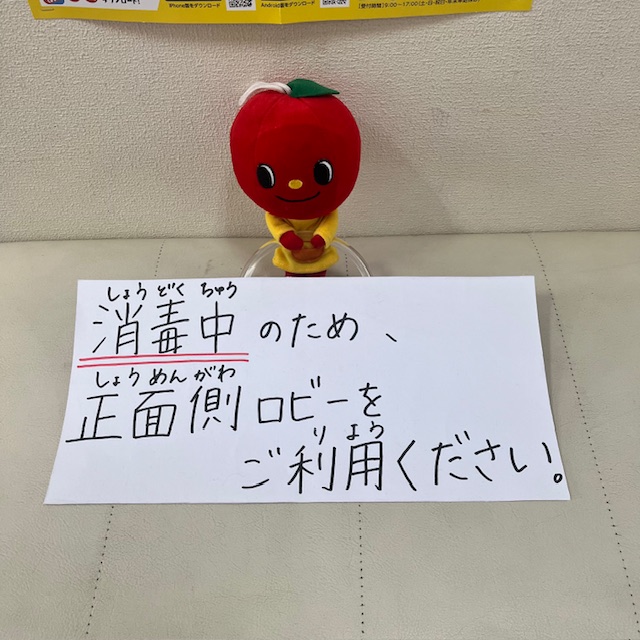 iPhone版をダウンロード
Android版をダウンロード
しょうどくちゅう
消毒中のため、
しょうめんがわ
正面側ロビーを
りよう
ご利用ください。